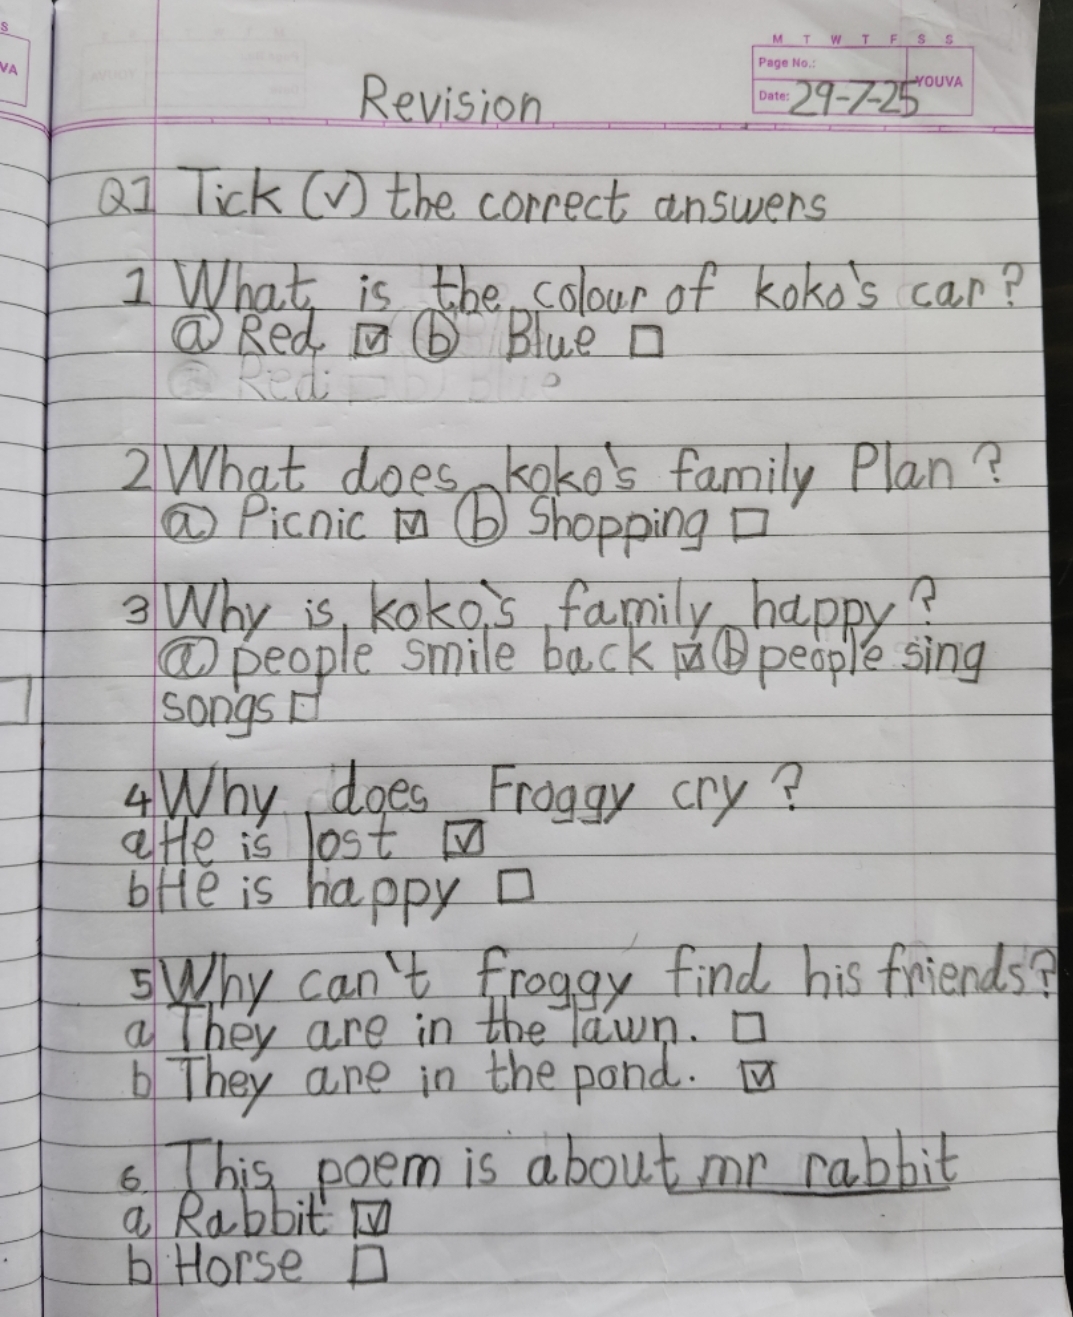 S
VA
M T W T F S S
Page No.:
YOUVA
Date: 29-7-25
Revision
Q1 Tick (✓) the correct answers
1 What is the colour of koko's car?
ⓐ Red ☑ ⓑ Blue ☐
ⓐ Red ☐ b) Blue
2 What does koko's family Plan?
ⓐ Picnic ☑ ⓑ Shopping ☐
3 Why is koko's family happy?
ⓐ people smile back ☑ ⓑ people sing
songs ☐
4 Why does Froggy cry?
a He is lost ☑
b He is happy ☐
5 Why can't froggy find his friends?
a They are in the lawn. ☐
b They are in the pond. ☑
6 This poem is about mr rabbit
a Rabbit ☑
b Horse ☐